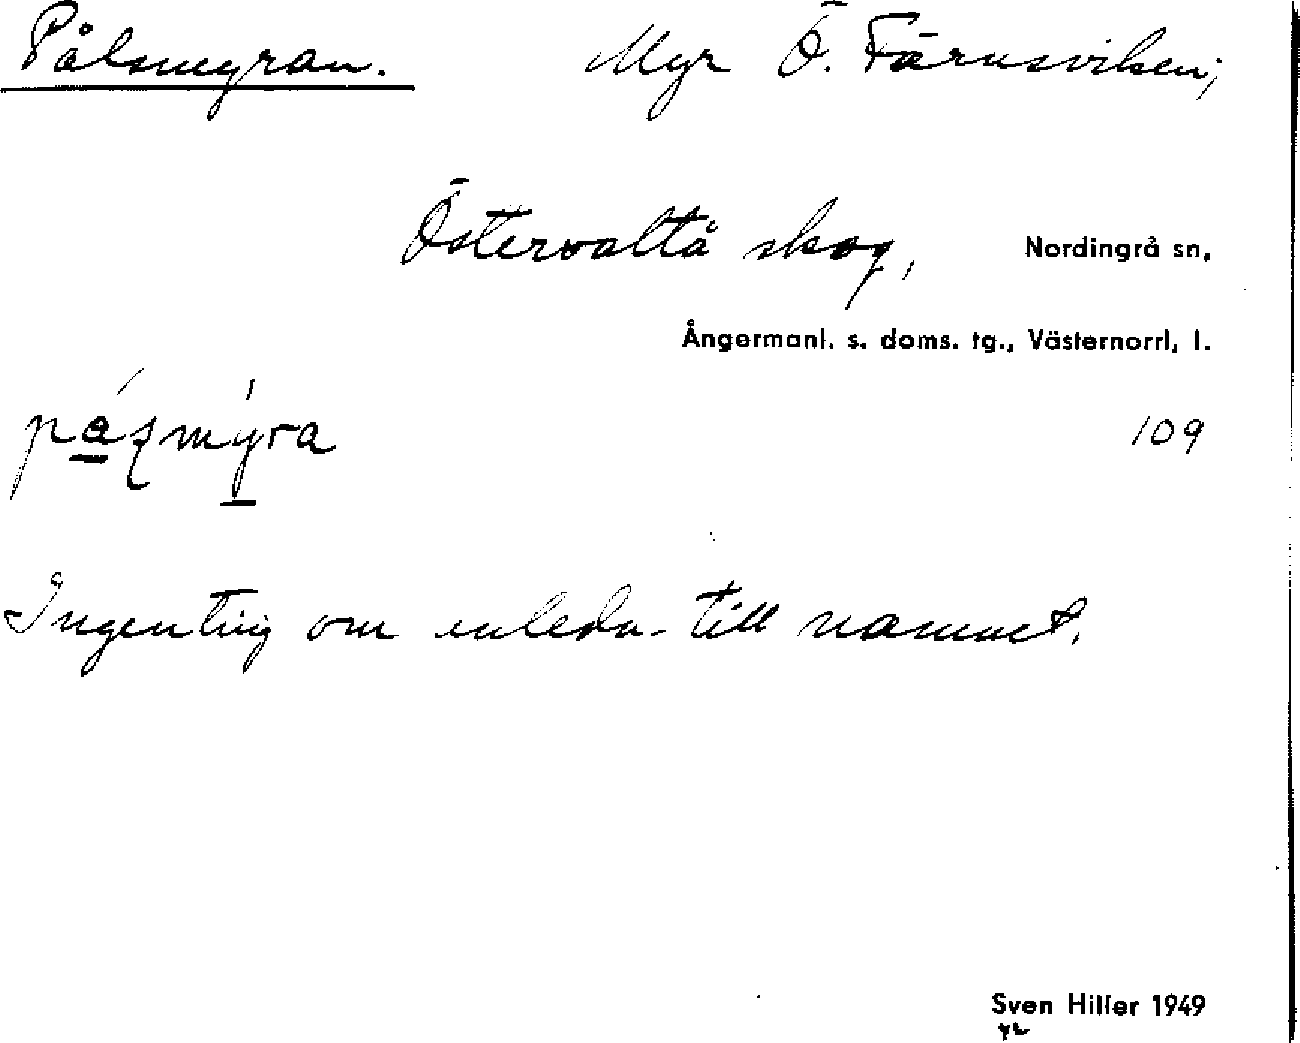 Pålsmyran. Myr Ö. Färnsviken;
Östervaltå skog, Nordingrå sn,
Ångermanl. s. doms. tg., Västernorrl, l.
109
Ingenting om anledn. till namnet.
Sven Hiller 1949